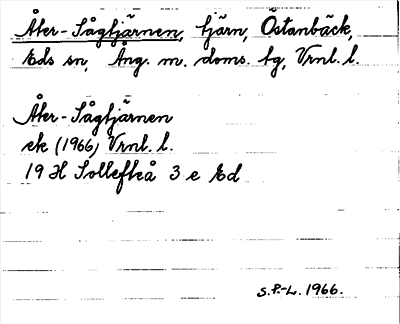 Åter-Sågtjärnen, tjärn, Östanbäck,
Eds sn, Ång. m. doms. bg, Vrnl. l.
Åter-Sågtjärnen
ek (1966) Vrnl. l.
19 H Sollefteå 3 e Ed
S.P.-L. 1966.